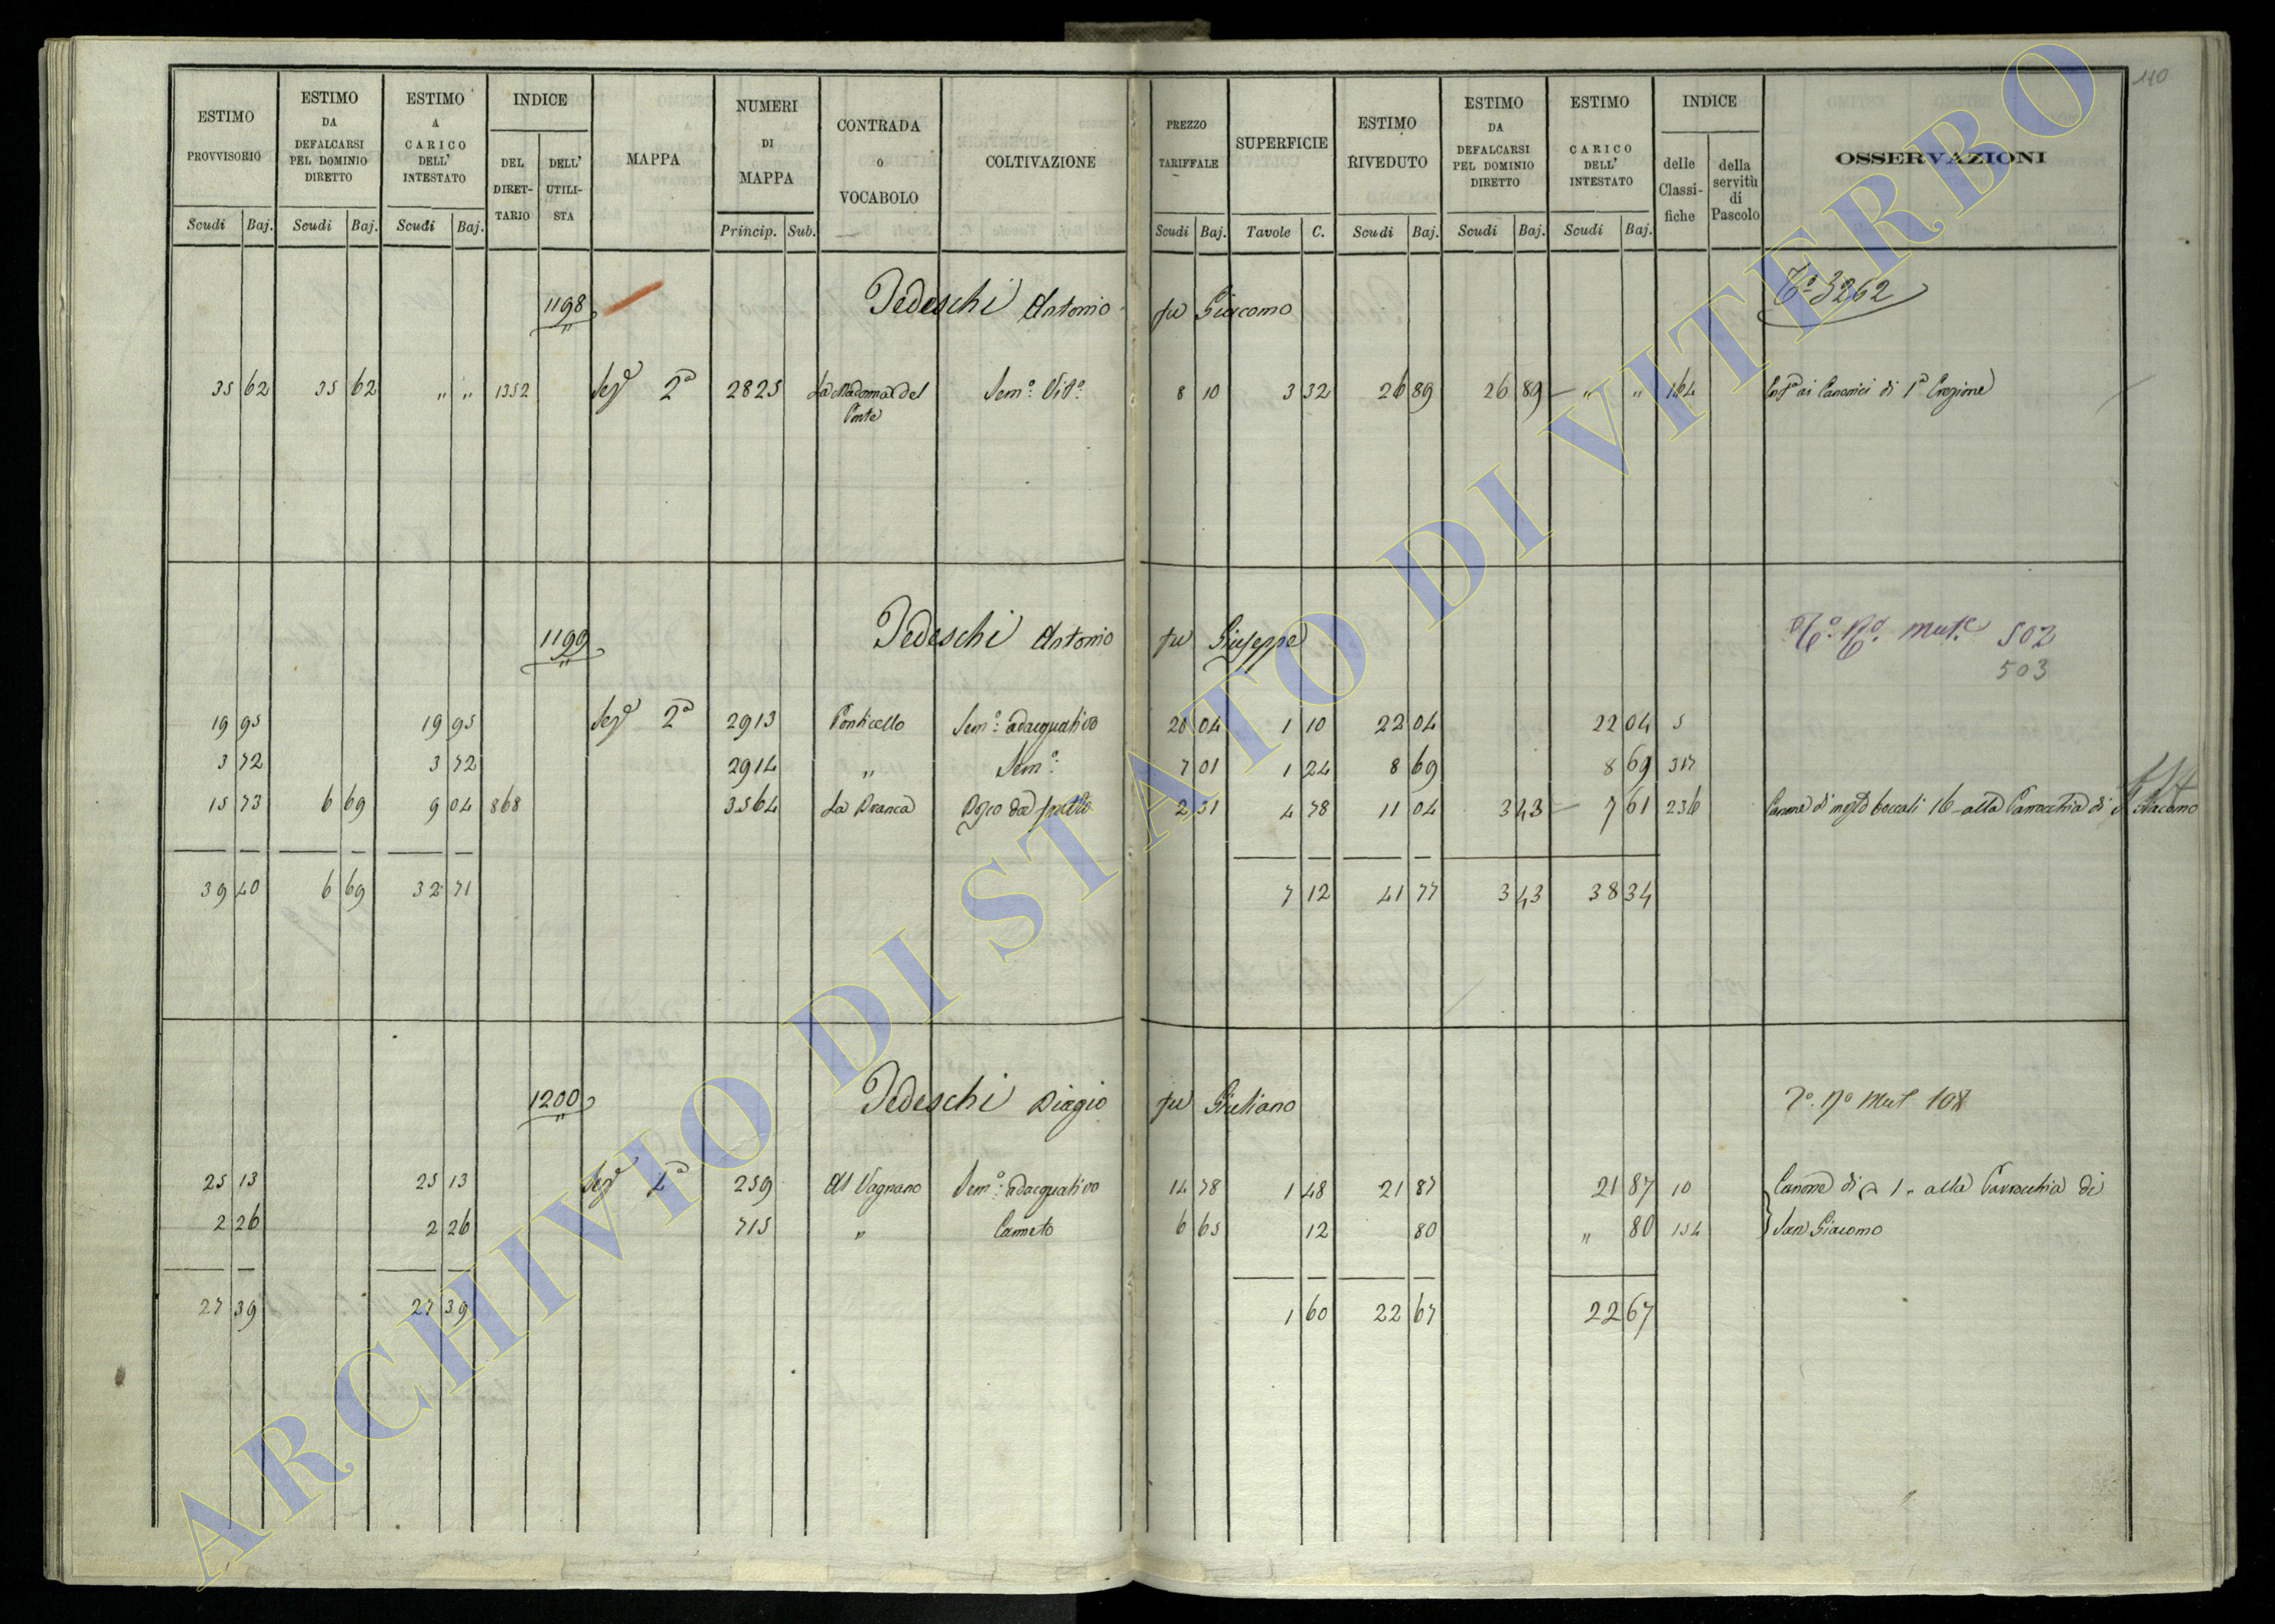 110
ESTIMO PROVVISORIO | ESTIMO DA DEFALCARSI PEL DOMINIO DIRETTO | ESTIMO A CARICO DELL' INTESTATO | INDICE | MAPPA | NUMERI DI MAPPA | CONTRADA O VOCABOLO | COLTIVAZIONE | PREZZO TARIFFALE | SUPERFICIE | ESTIMO RIVEDUTO | ESTIMO DA DEFALCARSI PEL DOMINIO DIRETTO | ESTIMO A CARICO DELL' INTESTATO | INDICE | OSSERVAZIONI
DEL DIRETTARIO | DELL' UTILISTA | delle Classifiche | della servitù di Pascolo
Scudi | Baj. | Scudi | Baj. | Scudi | Baj. | Princip. | Sub. | Scudi | Baj. | Tavole | C. | Scudi | Baj. | Scudi | Baj. | Scudi | Baj.
1198 Tedeschi Antonio fu Giacomo 3262
35 62 35 62 " " 1352 Sez.e 2a 2825 La Madonna del Ponte Sem.o Vit.o 8 10 3 32 26 89 26 89 " " 164 ai Canonici di 1a Erezione
1199 Tedeschi Antonio fu Giuseppe To No mut.e 502
503
19 95 19 95 Sez.e 2a 2913 Ponticello Sem.o adacquativo 20 04 1 10 22 04 22 04 5
3 72 3 72 2914 " Sem.o 7 01 1 24 8 69 8 69 317
15 73 6 69 9 04 868 3564 La Branca Bosco da frutto 2 31 4 78 11 04 3 43 7 61 236 Canone di mosto boccali 16 alla Parrocchia di S. Giacomo
39 40 6 69 32 71 7 12 41 77 3 43 38 34
1200 Tedeschi Biagio fu Giuliano To No Mut 108
25 13 25 13 Sez.e 4a 259 Al Vagnano Sem.o adacquativo 14 78 1 48 21 87 21 87 10 Canone di 1 " alla Parrocchia di
2 26 2 26 715 " Canneto 6 65 12 80 " 80 154 San Giacomo
27 39 27 39 1 60 22 67 22 67
ARCHIVIO DI STATO DI VITERBO